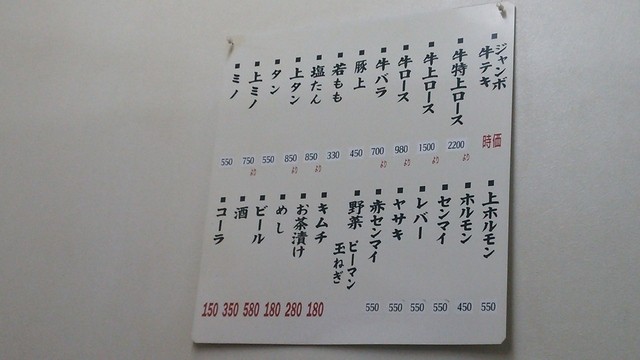 ■ジャンボ牛テキ 時価
■牛特上ロース 2200より
■牛上ロース 1500より
■牛ロース 980より
■牛バラ 700より
■豚上 450
■若もも 330
■塩たん 850より
■上タン 850より
■タン 550
■上ミノ 750より
■ミノ 550
■上ホルモン 550
■ホルモン 450
■センマイ 550
■レバー 550
■ヤサキ 550
■赤センマイ 550
■野菜 ピーマン
玉ねぎ
■キムチ 180
■お茶漬け 280
■めし 180
■ビール 580
■酒 350
■コーラ 150